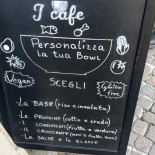 I cafe
Personalizza
la tua Bowl
Vegan
SCEGLI
Gluten
free
La BASE (riso e insalata)
Le PROTEINE (cotto e crudo)
I CONDIMENTI (frutta e verdura)
IL CROCCANTE (semi e frutta secca)
LA SALSA e la GLASSA